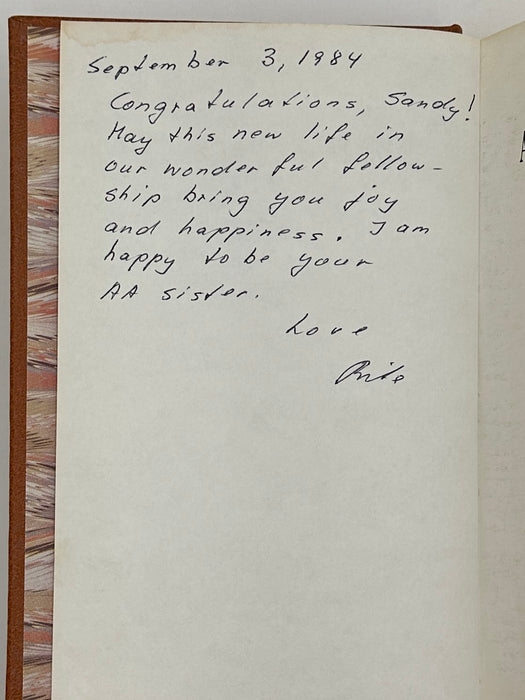 September 3, 1984
Congratulations, Sandy!
May this new life in
our wonderful fellow-
ship bring you joy
and happiness. I am
happy to be your
AA sister.
Love